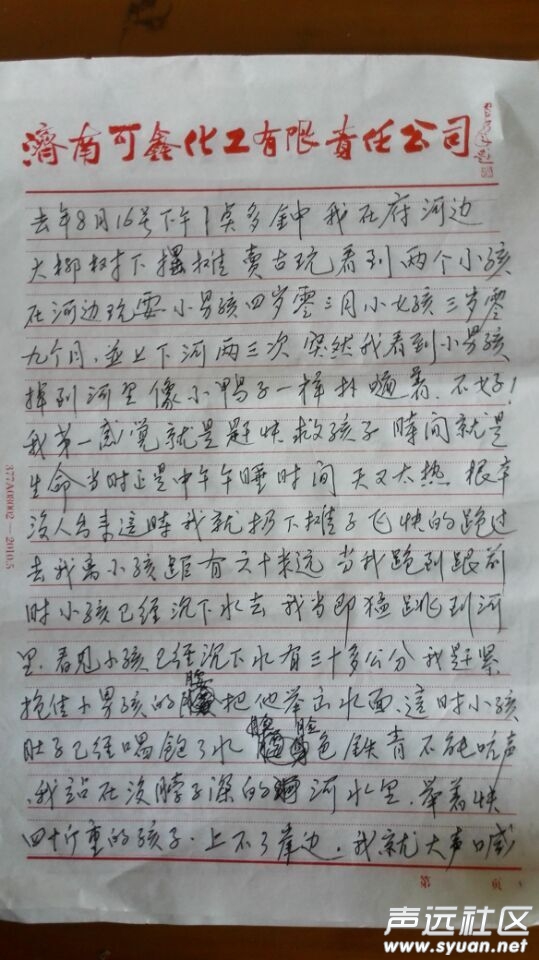 濟南可鑫化工有限責任公司
去年8月16号下午1点多钟 我在府河边
大柳树下摆摊 卖古玩看到两个小孩
在河边玩耍 小男孩四岁零三月小女孩三岁零
九个月，並上下河两三次 突然我看到小男孩
掉到河里像小鸭子一样扑嗵着、不好！
我第一感觉就是赶快救孩子 時间就是
生命当时正是中午午睡时间 天又太热 根本
没人出来這時我就扔下摊子飞快的跑过
去我离小孩距有六十米远 当我跑到跟前
时小孩已经沉下水去 我当即猛跳到河
里，看见小孩已经沉下水有三十多公分 我赶紧
抱住小男孩的腰把他举出水面、這时小孩
肚子已经喝饱了水 脸色铁青不能吭声
、我站在没脖子深的河水里、举着快
四十斤重的孩子·上不了岸边、我就大声喊
第 页
377A08002—2010.5
声远社区
www.syuan.net